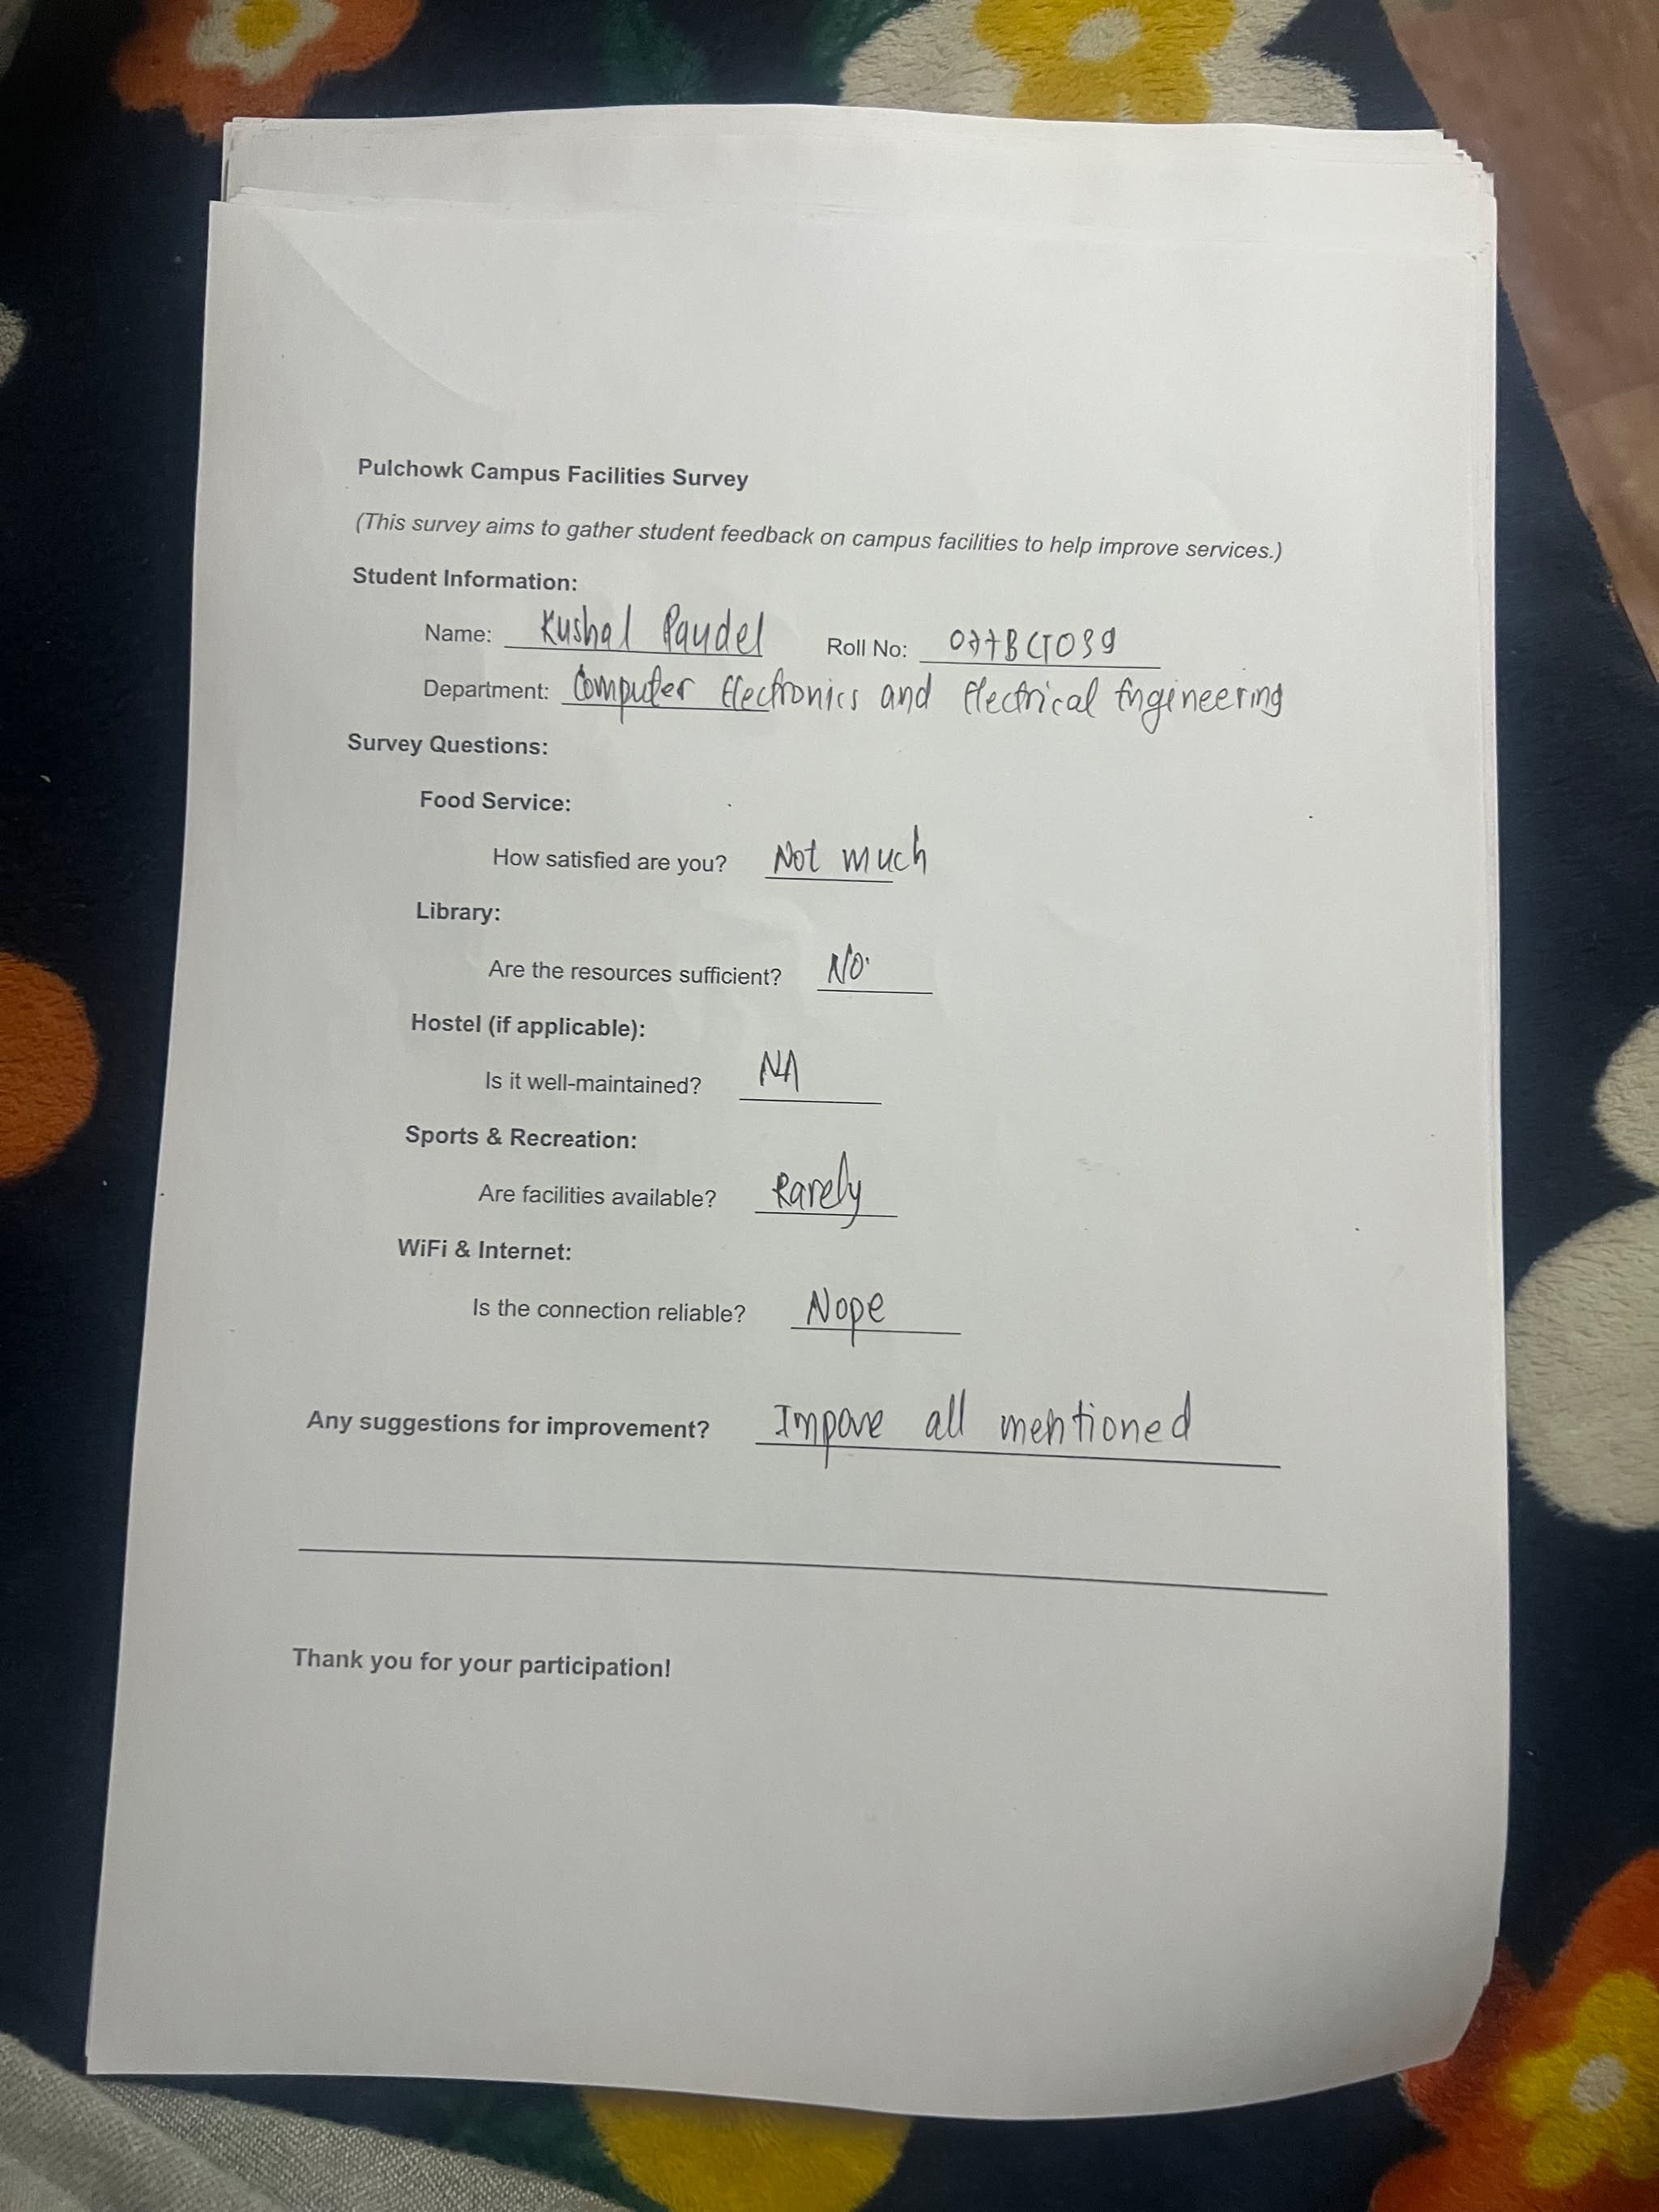 Pulchowk Campus Facilities Survey
(This survey aims to gather student feedback on campus facilities to help improve services.)
Student Information:
Name: Kushal Paudel Roll No: 077BCT039
Department: Computer Electronics and Electrical Engineering
Survey Questions:
Food Service:
How satisfied are you? Not much
Library:
Are the resources sufficient? No.
Hostel (if applicable):
Is it well-maintained? NA
Sports & Recreation:
Are facilities available? Rarely
WiFi & Internet:
Is the connection reliable? Nope
Any suggestions for improvement? Impove all mentioned
Thank you for your participation!